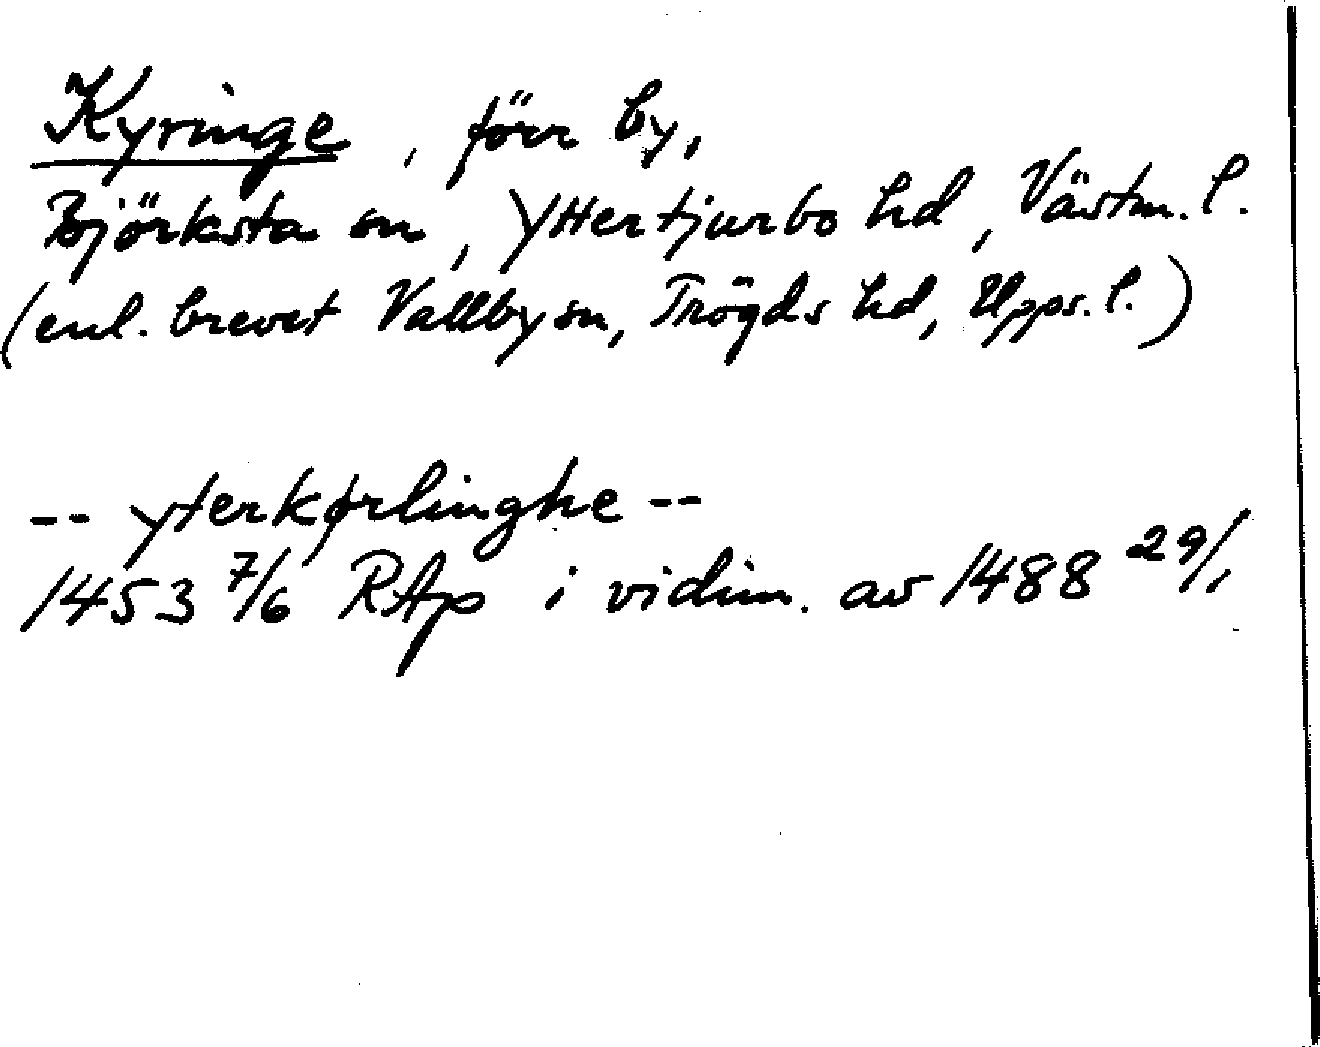 Kyringe, förr by,
Björksta sn, Yttertjurbo hd, Västm. l.
(enl. brevet Vallby sn, Trögds hd, Upps. l.)
-- yterkørlinghe --
1453 7/6 RAp i vidim. av 1488 29/1